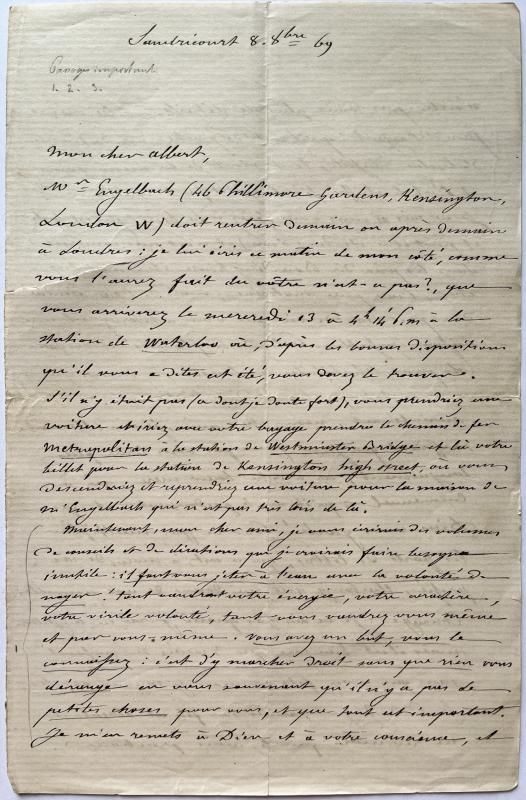 Sandricourt 8. 8bre 69
Passages important
1. 2. 3.
Mon cher Albert,
Mr Engelbach (46 Phillimore Gardens, Kensington,
London W) doit rentrer demain ou après demain
à Londres : je lui écris ce matin de mon côté, comme
vous l'aurez fait du vôtre n'est-ce pas?, que
vous arriverez le mercredi 13 à 4h 14' p.m à la
station de Waterloo où, d'après les bonnes dispositions
qu'il vous a dites cet été, vous devez le trouver.
S'il n'y était pas (ce dont je doute fort), vous prendriez une
voiture et iriez avec votre bagage prendre le chemin de fer
Metropolitain à la station de Westminster Bridge et là votre
billet pour la station de Kensington high street, où vous
descendriez et reprendriez une voiture pour la maison de
Mr Engelbach qui n'est pas très loin de là.
Maintenant, mon cher ami, je vous écrirais des volumes
de conseils et de directions que je croirais faire besogne
inutile : il faut vous jeter à l'eau avec la volonté de
nager ! tant vaudront votre énergie, votre caractère,
votre virile volonté, tant vous vaudrez vous même
et par vous-même. Vous avez un but, vous le
connaissez : c'est d'y marcher droit sans que rien vous
dérange en vous souvenant qu'il n'y a pas de
petites choses pour vous, et que tout est important.
Je m'en remets à Dieu et à votre conscience, et